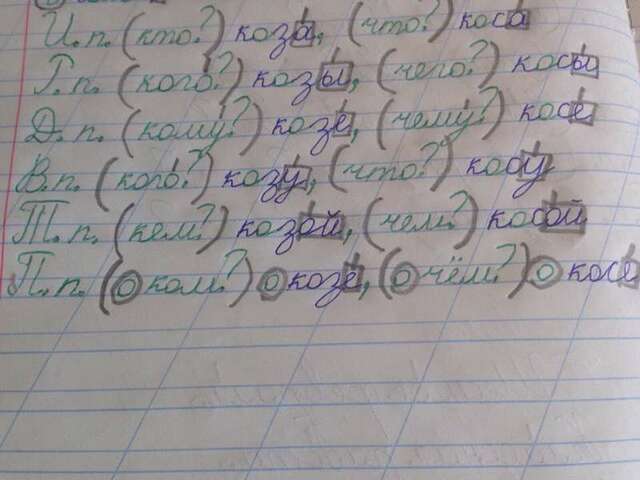 И.п. (кто?) коза́, (что?) коса́
Р.п. (кого́?) козы́, (чего?) косы́
Д.п. (кому́?) козе́, (чему́?) косе́
В.п. (кого́?) козу́, (что?) косу́
Т.п. (кем?) козо́й, (чем?) косо́й
П.п. (о ком?) о козе́, (о чём?) о косе́